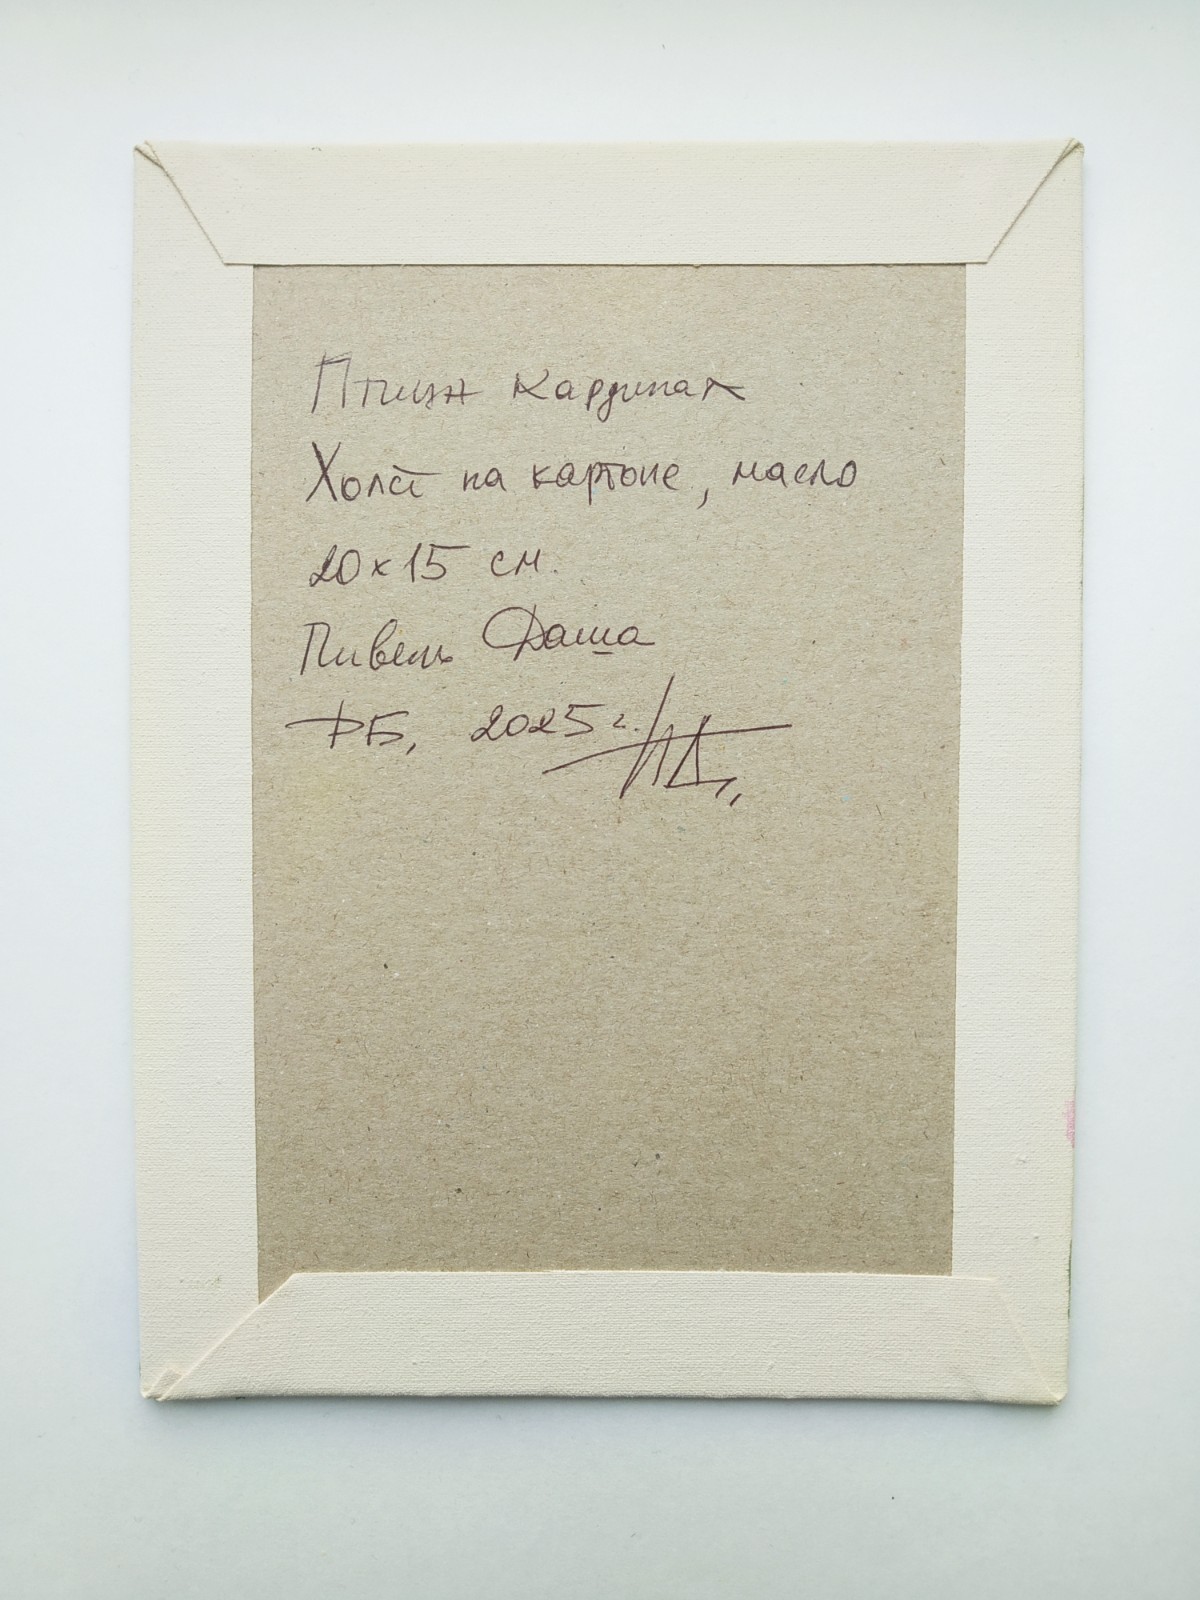 Птица кардинал
Холст на картоне, масло
20х15 см.
Пивень Даша
РБ, 2025 г.